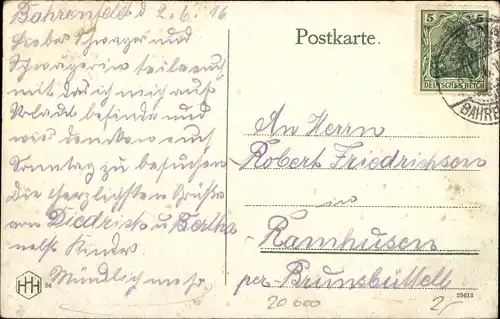 Bahrenfeld d 2.6.16
Lieber Schwager und
Schwägerin teile euch
mit das ich mich auf
Urlaub befinde und
wir dencken euch
Sonntag zu besuchen
Die herzlichsten Grüße
von Diedrich u Bertha
nebst Kinder
Mündlich mehr
HHH
Postkarte.
5 5
DEUTSCHES REICH
BAHRE
An Herrn
Robert Friedrichsen
in
Ramhusen
per Brunsbüttell
20 000
25613